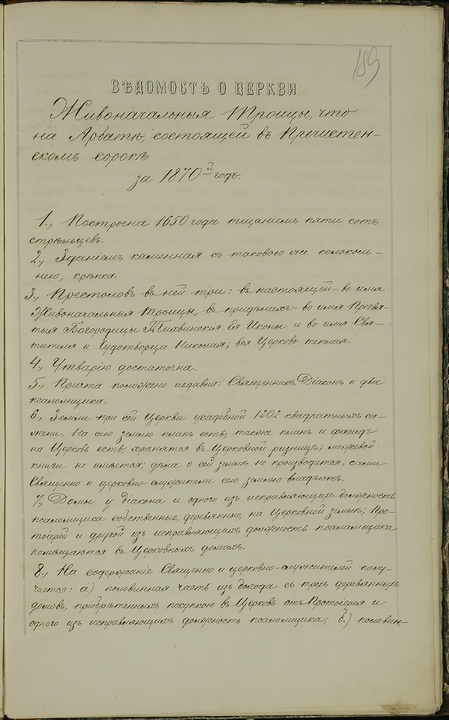 189
ВѢДОМОСТЬ О ЦЕРКВИ
Живоначальныя Троицы, что
на Арбатѣ, состоящей въ Пречистен-
скомъ сорокѣ
за 1870й годъ.
1., Построена 1650 года тщаніемъ пяти сотъ
стрѣльцевъ.
2., Зданіемъ каменная съ таковою же колоколь-
нею, крѣпка.
3., Престоловъ въ ней три: въ настоящей - во имя
Живоначальныя Троицы, въ придѣлахъ: - во имя Пресвя-
тыя Богородицы Тихвинскія Ея Иконы и во имя Свя-
тителя и Чудотворца Николая; вся Церковь теплая.
4., Утварію достаточна.
5., Причта положено издавна: Священникъ, Діаконъ и два
псаломщика.
6., Земли при сей Церкви усадебной 1202 квадратныхъ са-
жени. На сію землю планъ есть, также планъ и фасадъ
на Церковь есть, хранятся въ Церковной ризницѣ; межевой
книги не имѣется, дѣла о сей землѣ не производится; сами
Священно и церковно-служители сею землею владѣютъ.
7., Домы у діакона и одного изъ исправляющихъ должность
псаломщика собственные, деревянные, на Церковной землѣ; Про-
тоіерей и другой изъ исправляющихъ должность псаломщика
помѣщаются въ Церковныхъ домахъ.
8., На содержаніе Священно и церковно-служителей полу-
чается: а) половинная часть изъ дохода съ трехъ деревянныхъ
домовъ, пріобрѣтенныхъ покупкою въ Церковь отъ Протоіерея и
одного изъ исправляющихъ должность псаломщика; б.) половин-